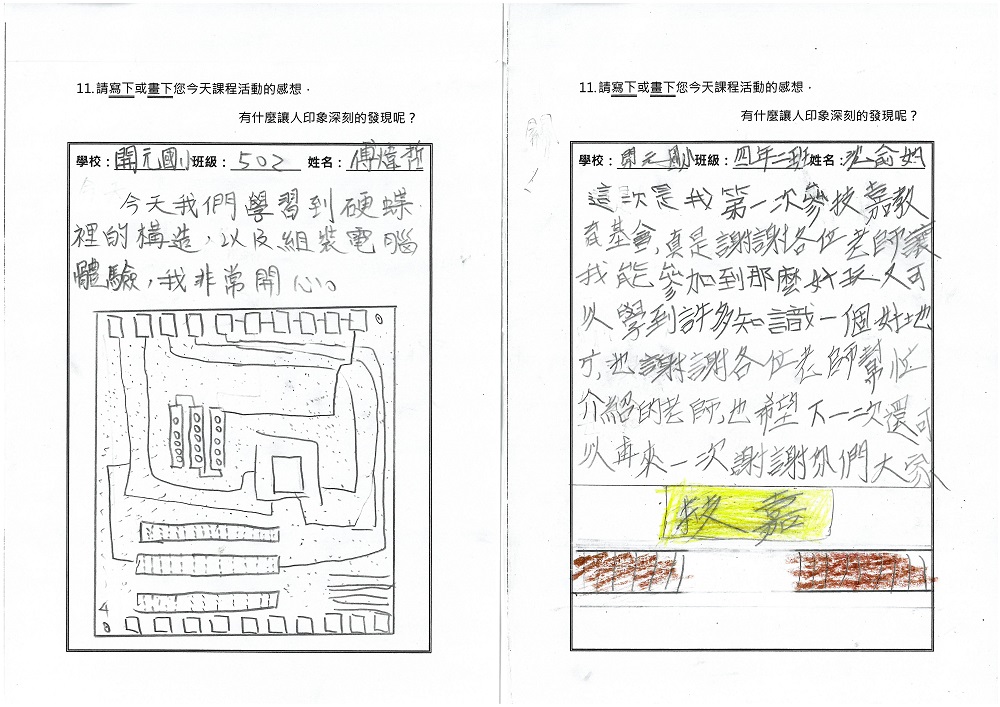 11.請寫下或畫下您今天課程活動的感想，
有什麼讓人印象深刻的發現呢？
學校：開元國小班級：502 姓名：傅煒哲
今天我們學習到硬蝶
裡的構造，以及組裝電腦
體驗，我非常開心。
11.請寫下或畫下您今天課程活動的感想，
有什麼讓人印象深刻的發現呢？
學校：開元國小班級：四年二班姓名：俞妡
這次是我第一次參技嘉教
育基會，真是謝謝各位老師讓
我能參加到那麼好玩.又可
以學到許多知識一個好地
方，也謝謝各位老師幫忙
介紹的老師，也希望下一二次還可
以再來一次謝謝你們大家
技嘉